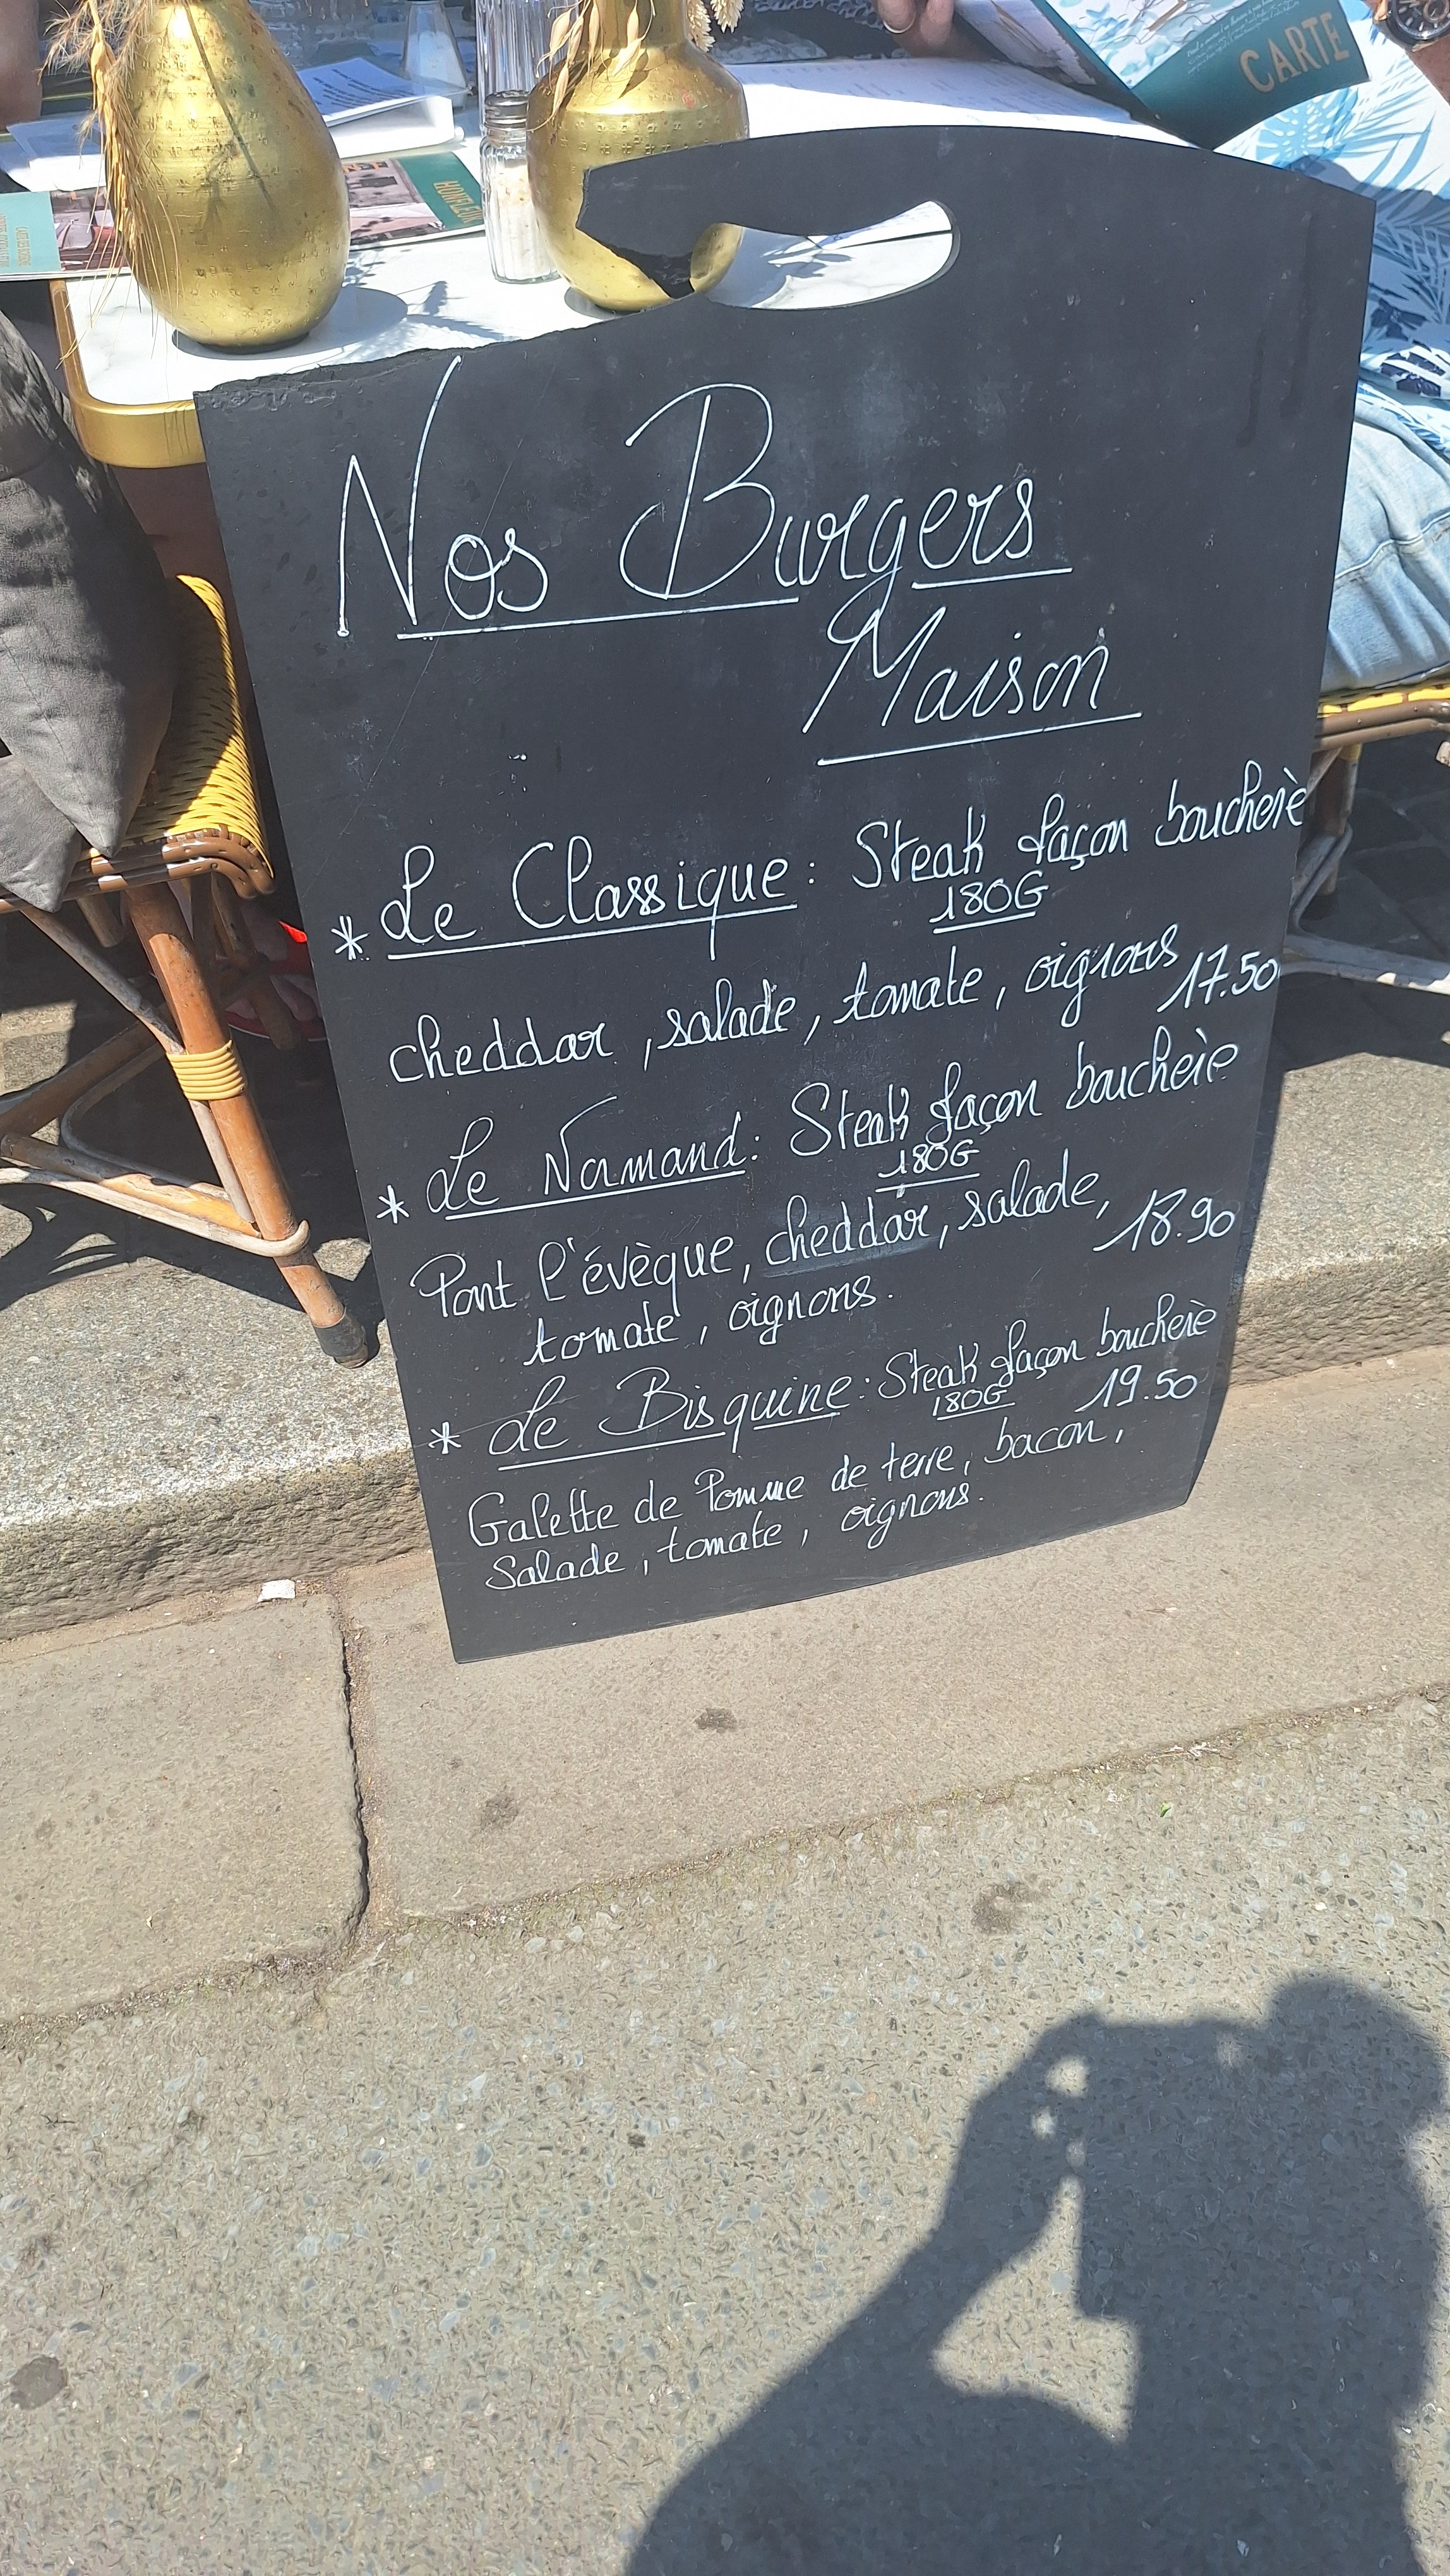 CARTE
HONFLEUR
Nos Burgers
Maison
* Le Classique : Steak façon boucherè
180G
cheddar, salade, tomate, oignons 17.50
* Le Normand : Steak façon boucherè
180G
Pont l'évèque, cheddar, salade, 18.90
tomate, oignons.
* Le Bisquine : Steak façon boucherè
180G 19.50
Galette de Pomme de terre, bacon,
Salade, tomate, oignons.